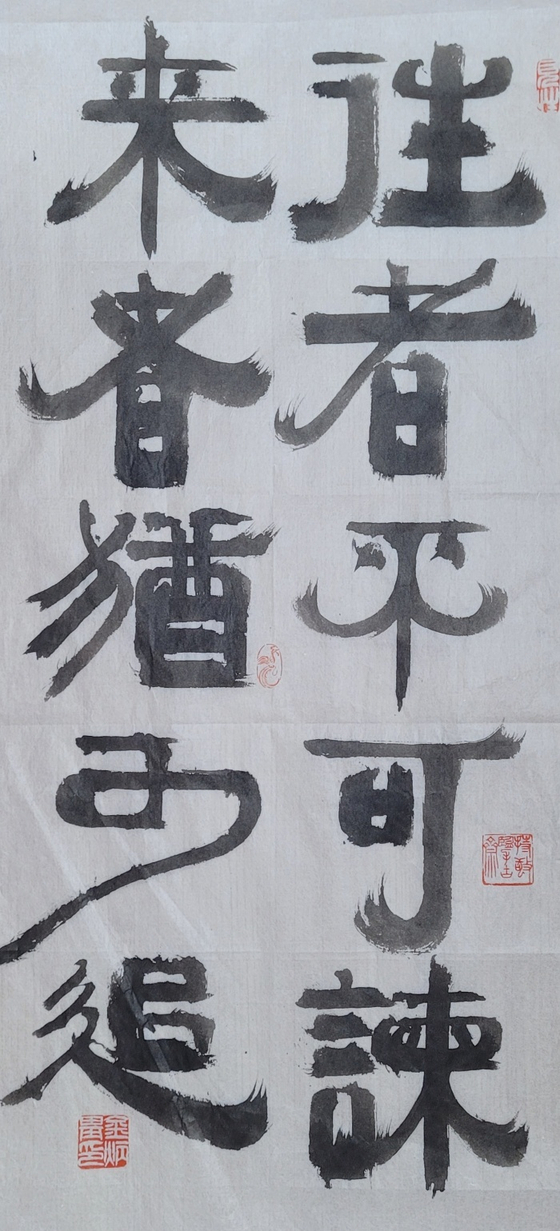 往者不可諫
来者猶可追